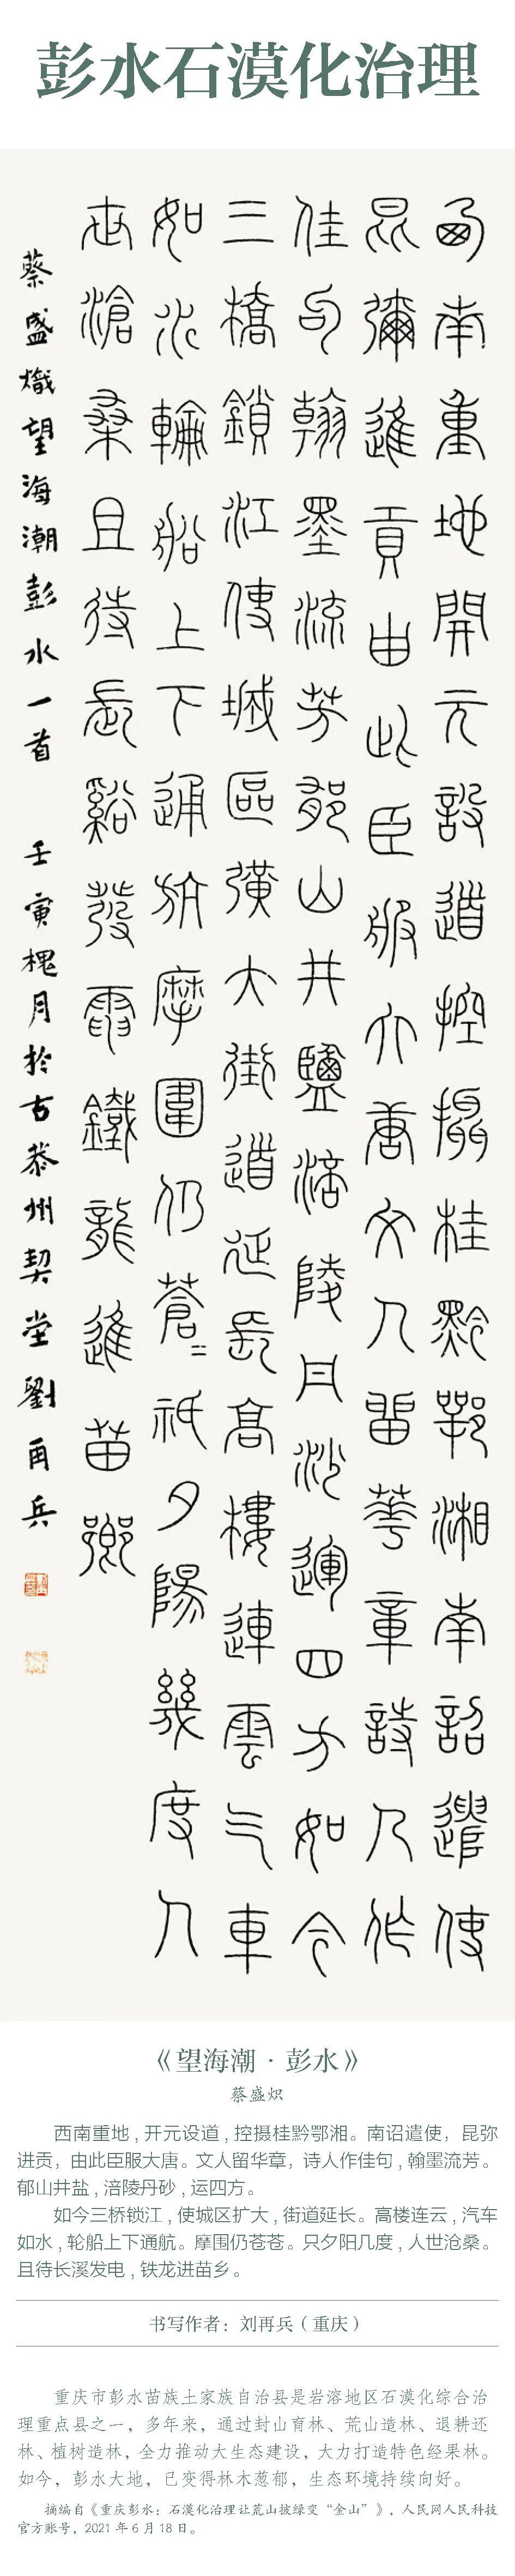 彭水石漠化治理
西南重地開元設道控攝桂黔鄂湘南詔遣使
昆彌進貢由此臣服大唐文人留華章詩人作
佳句翰墨流芳郁山井鹽涪陵丹沙運四方如今
三橋鎖江使城區彍大街道延長高樓連雲气車
如水輪船上下通航摩圍仍蒼〻祇夕陽幾度人
世滄桑且待長谿發電鐵龍進苗鄉
蔡盛熾望海潮彭水一首 壬寅槐月於古恭州契堂劉再兵
《望海潮·彭水》
蔡盛炽
西南重地,开元设道,控摄桂黔鄂湘。南诏遣使,昆弥
进贡,由此臣服大唐。文人留华章,诗人作佳句,翰墨流芳。
郁山井盐,涪陵丹砂,运四方。
如今三桥锁江,使城区扩大,街道延长。高楼连云,汽车
如水,轮船上下通航。摩围仍苍苍。只夕阳几度,人世沧桑。
且待长溪发电,铁龙进苗乡。
书写作者:刘再兵(重庆)
重庆市彭水苗族土家族自治县是岩溶地区石漠化综合治
理重点县之一,多年来,通过封山育林、荒山造林、退耕还
林、植树造林,全力推动大生态建设,大力打造特色经果林。
如今,彭水大地,已变得林木葱郁,生态环境持续向好。
摘编自《重庆彭水:石漠化治理让荒山披绿变“金山”》,人民网人民科技
官方账号,2021年6月18日。